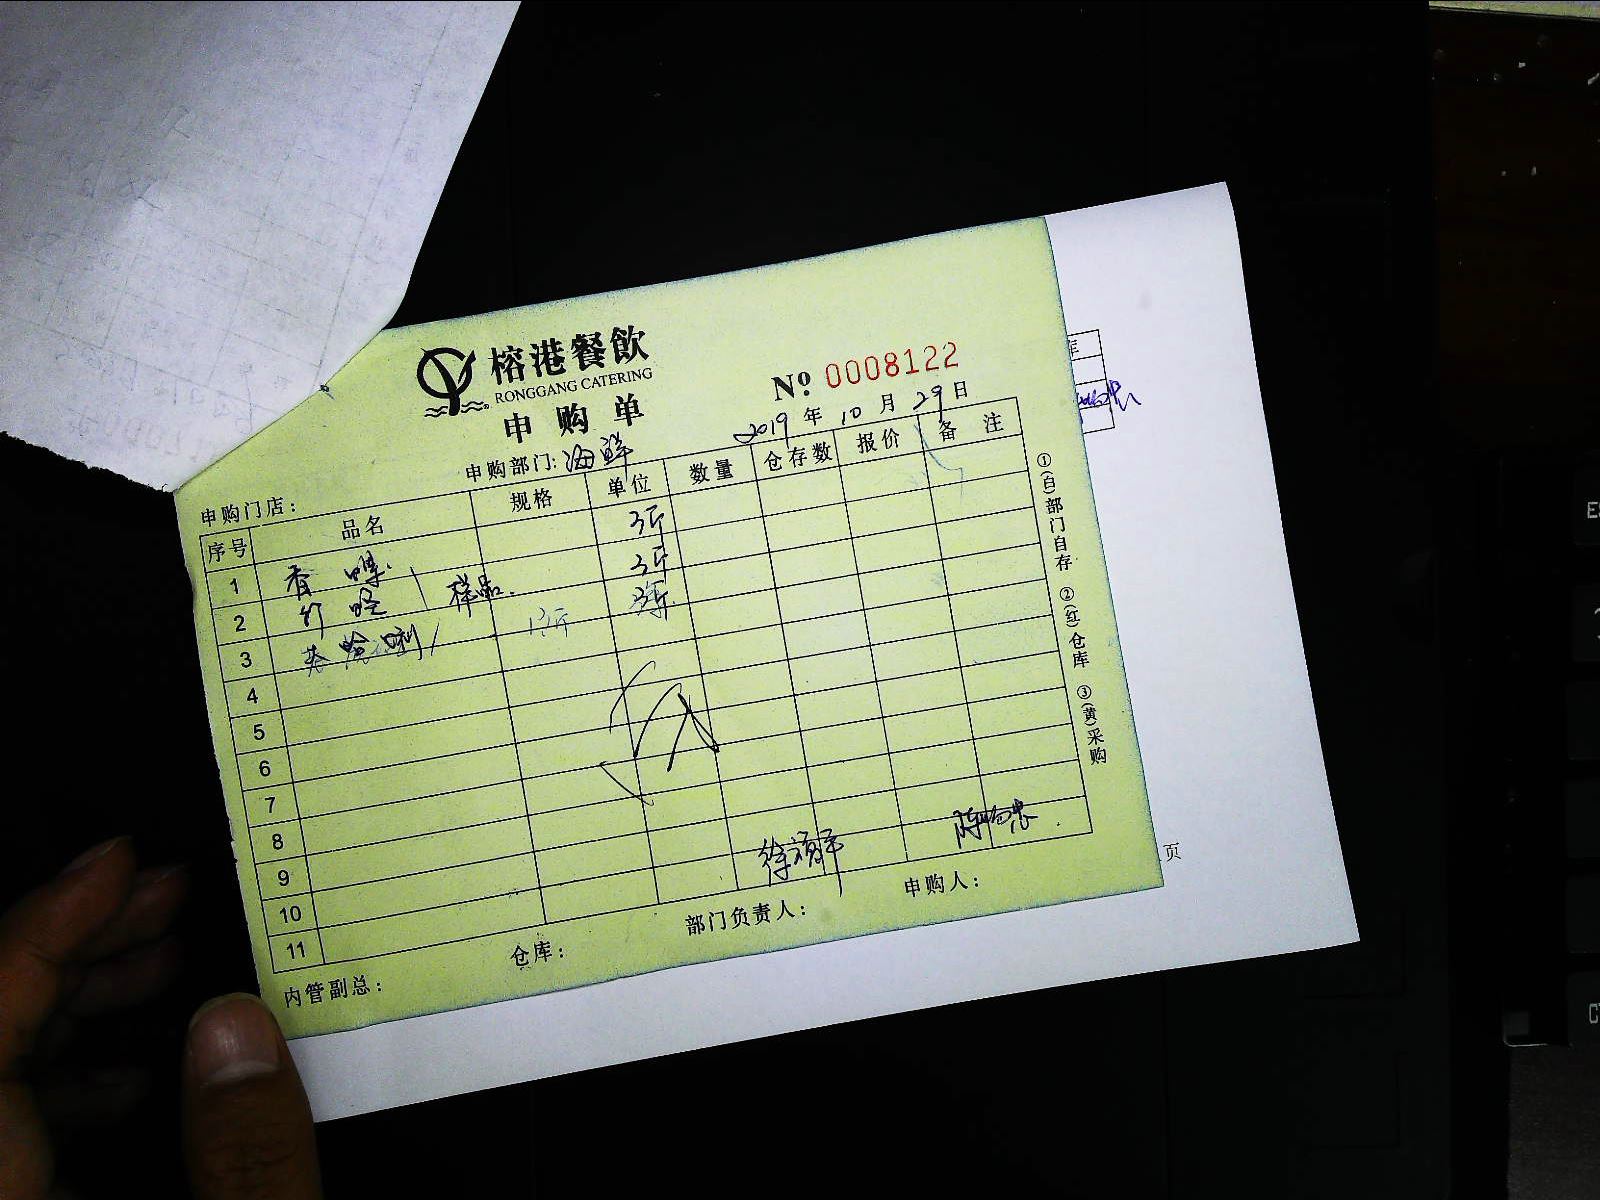 榕港餐飲
RONGGANG CATERING
申购单
No 0008122
申购部门: 海鲜
2019 年 10 月 29 日
申购门店:
序号 品名 规格 单位 数量 仓存数 报价 备注
1 香螺 3斤
2 竹蛏 样品 3斤
3 哈唎 3斤
4
5
6
7
8
9
10
11
内管副总:
仓库:
部门负责人:
申购人:
①(白)部门自存 ②(红)仓库 ③(黄)采购
页